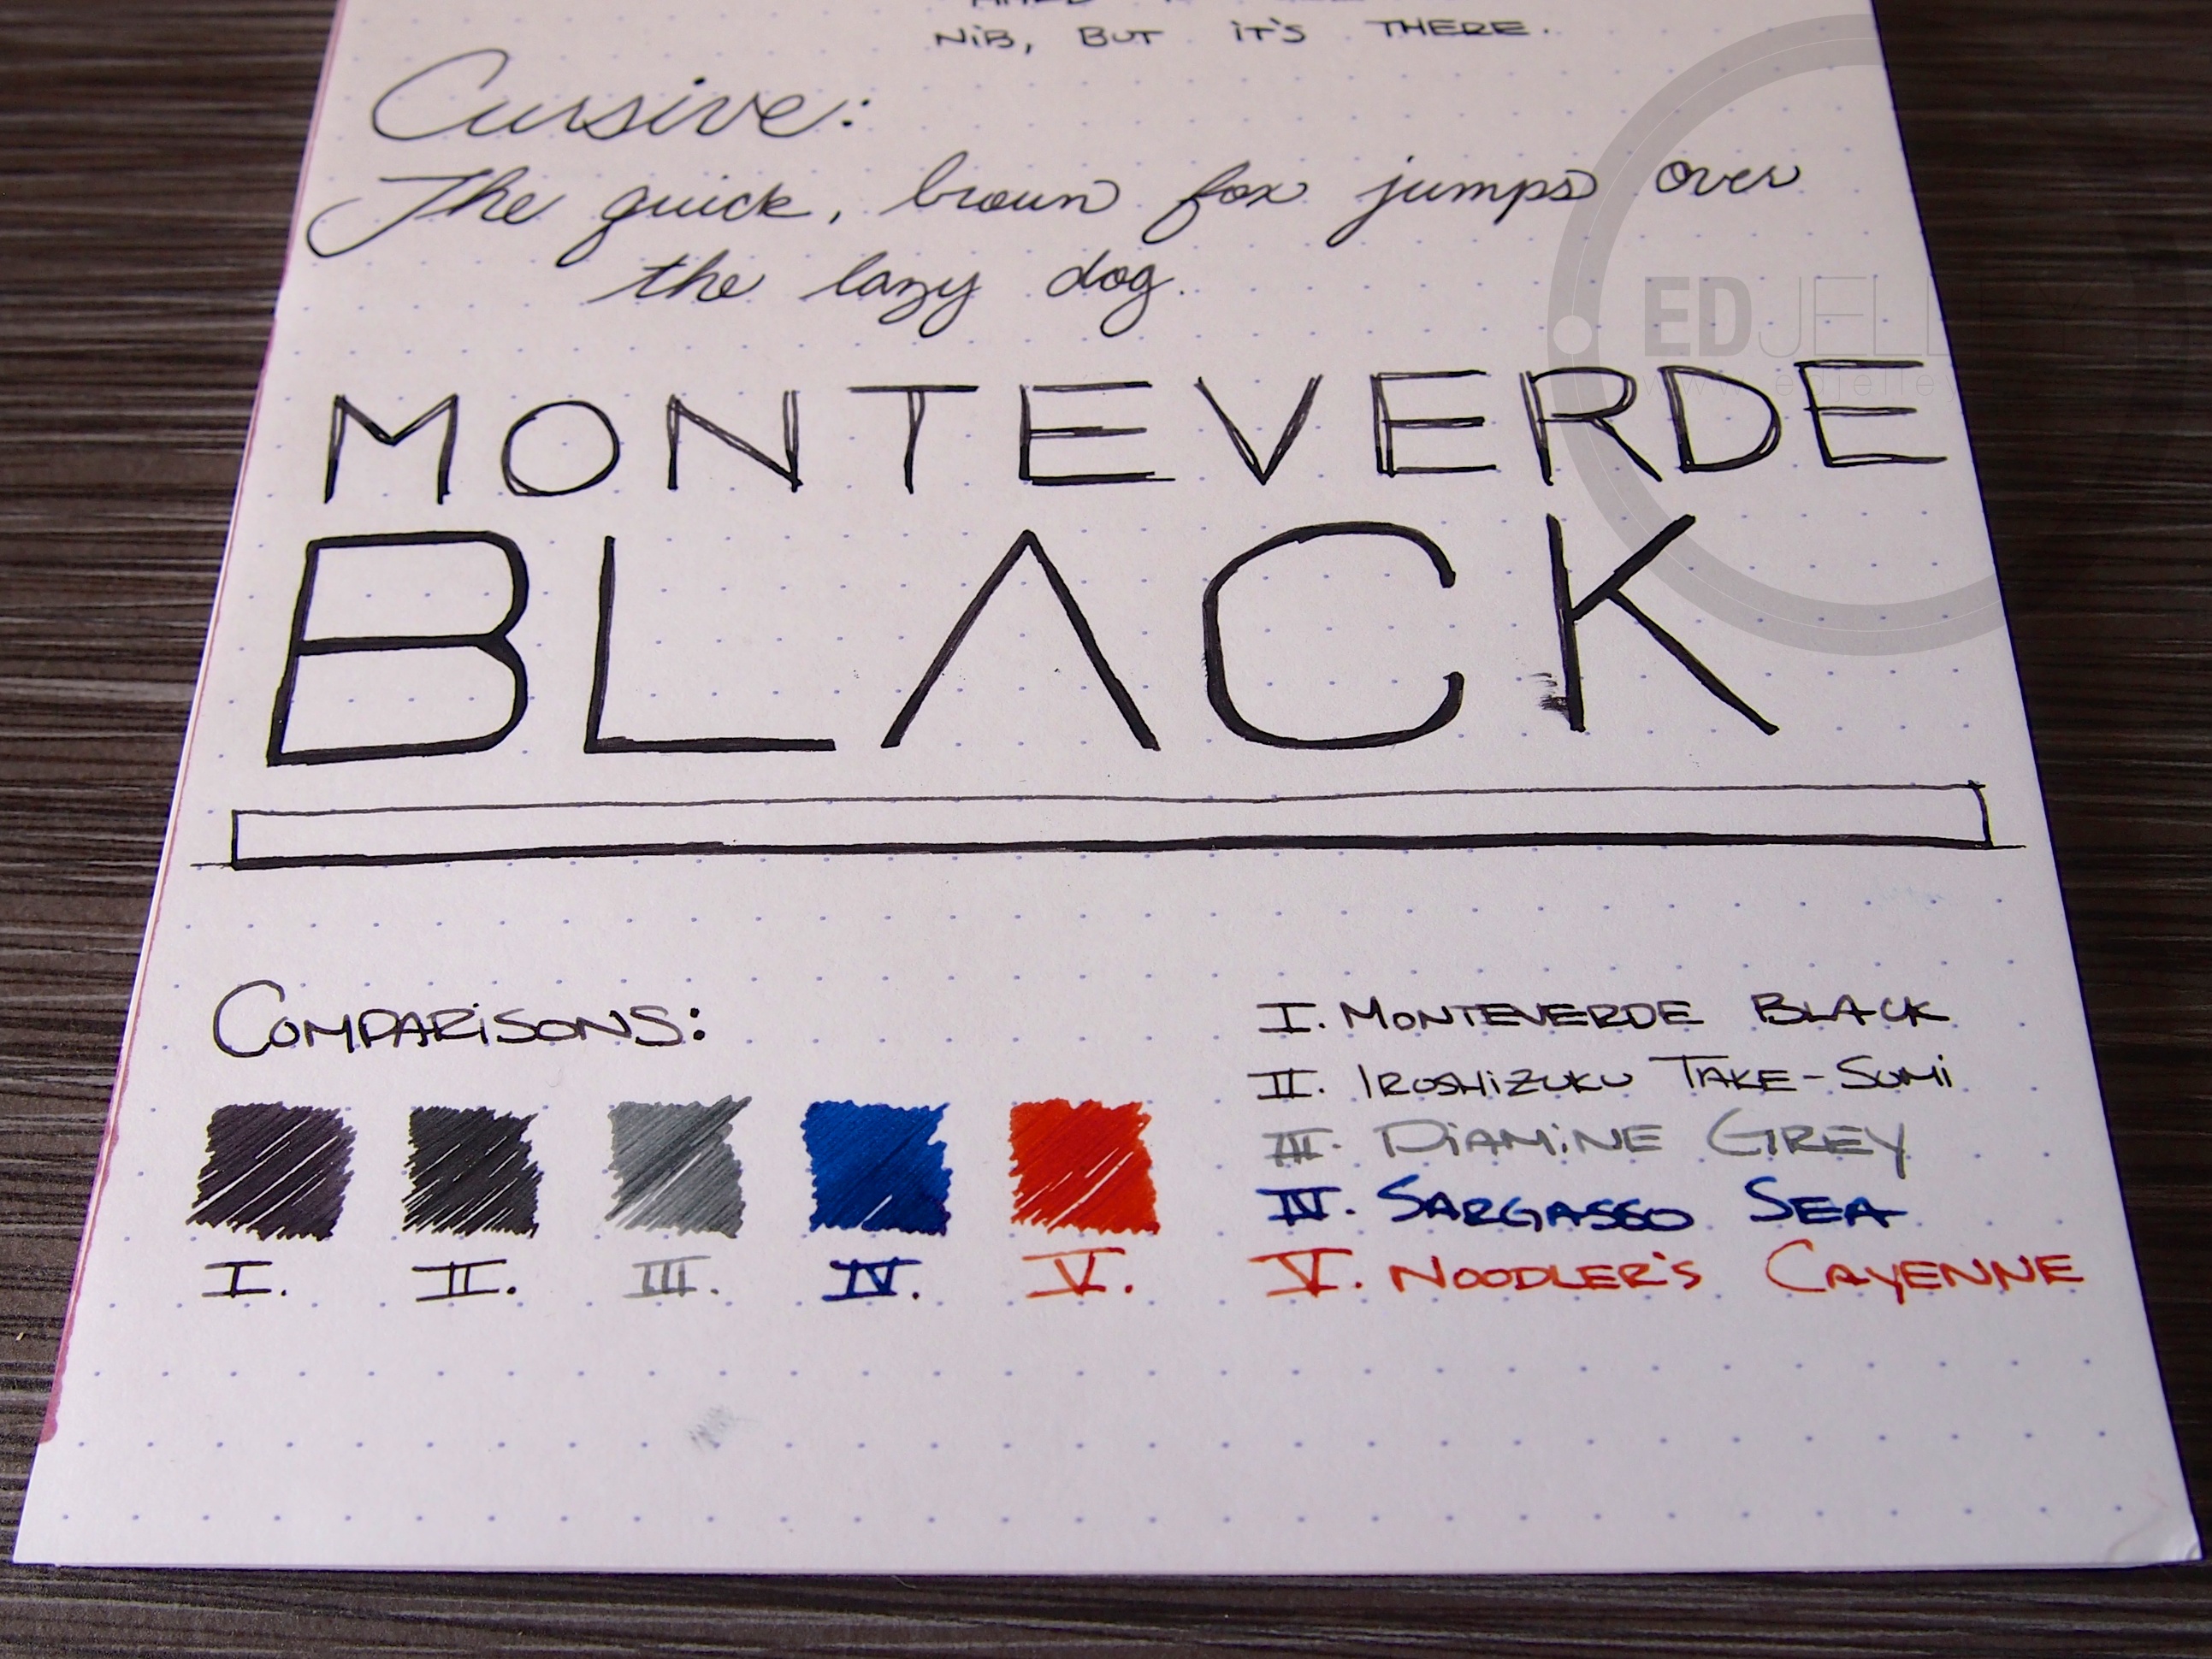 NiB, BUT iT'S THERE.
Cursive:
The quick, brown fox jumps over
the lazy dog.
EDJELLEY
www.edjelley
MONTEVERDE
BLACK
COMPARiSONS:
I. MONTEVERDE BLACK
II. IROSHiZUKU TAKE-SUMi
III. DiAMiNE GREY
IV. SARGASSO SEA
V. NOODLER'S CAYENNE
I. II. III. IV. V.